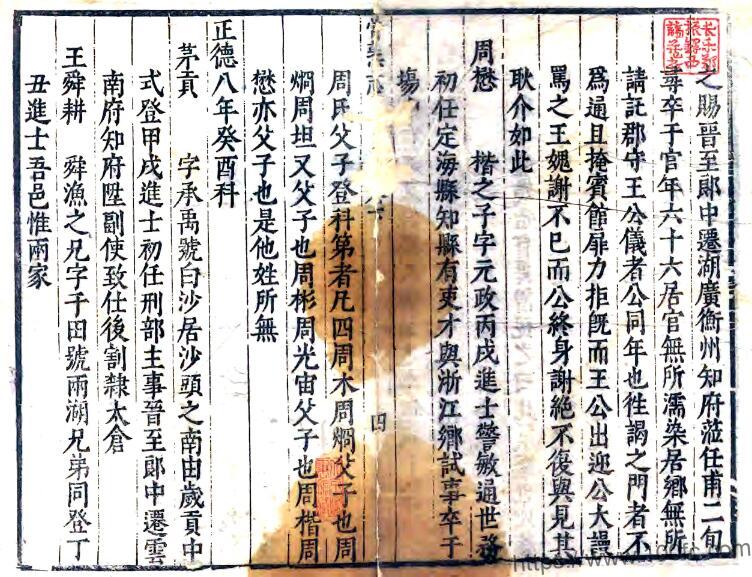 之賜晉至郎中遷湖廣衡州知府蒞任甫二旬
尋卒于官年六十六居官無所濡染居鄉無所
請託郡守王公儀者公同年也徃謁之門者不
爲通且掩賓館扉力拒旣而王公出迎公大謾
罵之王媿謝不已而公終身謝絕不復與見其
耿介如此
周懋 楷之子字元政丙戌進士警敏通世務
初任定海縣知縣有吏才與浙江鄉試事卒于
塲
四
周氏父子登科第者凡四周木周炯父子也周
炯周坦又父子也周彬周光宙父子也周楷周
懋亦父子也是他姓所無
正德八年癸酉科
茅貢 字承禹號白沙居沙頭之南由歲貢中
式登甲戌進士初任刑部主事晉至郎中遷雲
南府知府陞副使致仕後割隸太倉
王舜耕 舜漁之兄字于田號兩湖兄弟同登丁
丑進士吾邑惟兩家